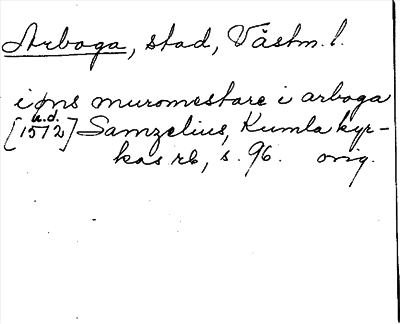 Arboga, stad, Västm. l.
i öns muromestare i arboga
u.d.
[1572] Samzelius, Kumla kyr-
kas rb, s. 96. orig.